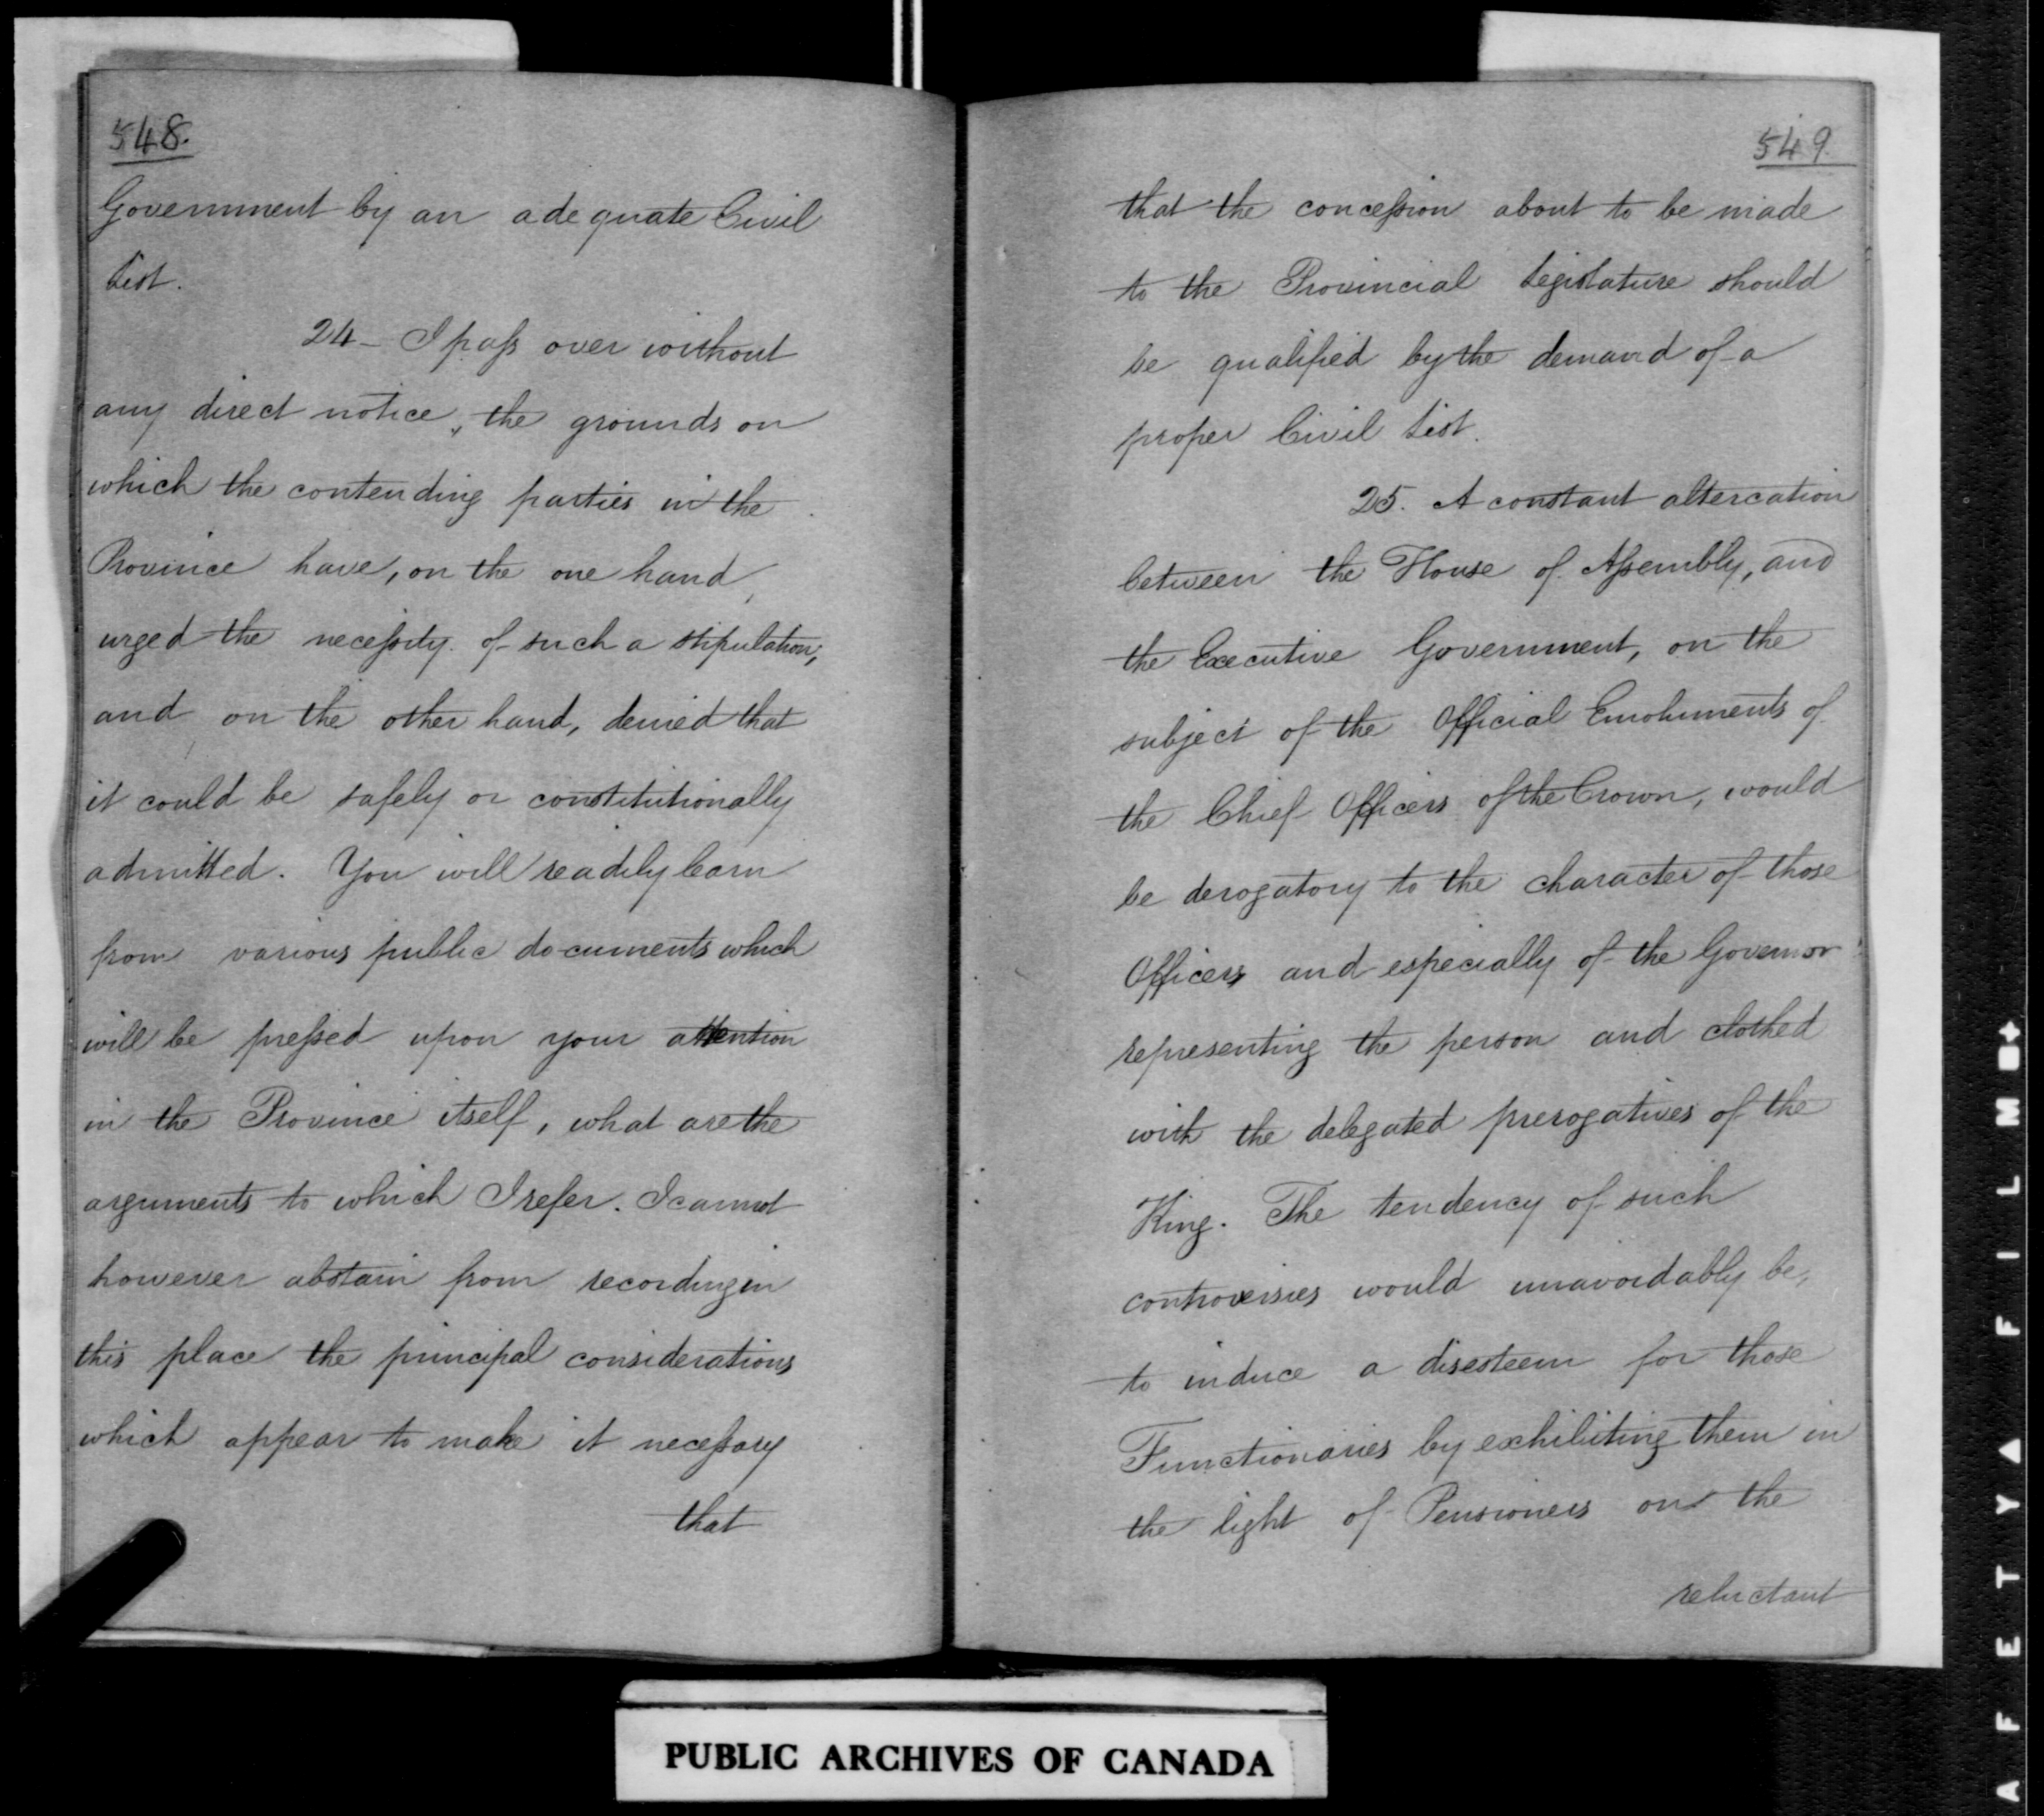 548.
Government by an adequate Civil
List.
24 - I pass over without
any direct notice, the grounds on
which the contending parties in the
Province have, on the one hand,
urged the necessity of such a stipulation,
and on the other hand, denied that
it could be safely or constitutionally
admitted. You will readily learn
from various public documents which
will be pressed upon your attention
in the Province itself, what are the
arguments to which I refer. I cannot
however abstain from recording in
this place the principal considerations
which appear to make it necessary
that
549.
that the concession about to be made
to the Provincial Legislature should
be qualified by the demand of a
proper Civil List.
25. A constant altercation
between the House of Assembly, and
the Executive Government, on the
subject of the Official Emoluments of
the Chief Officers of the Crown, would
be derogatory to the character of those
Officers and especially of the Governor
representing the person and clothed
with the delegated prerogatives of the
King. The tendency of such
controversies would unavoidably be,
to induce a disesteem for those
Functionaries by exhibiting them in
the light of Pensioners on the
reluctant
PUBLIC ARCHIVES OF CANADA
A F E T Y ▲ F I L M ■ ✦